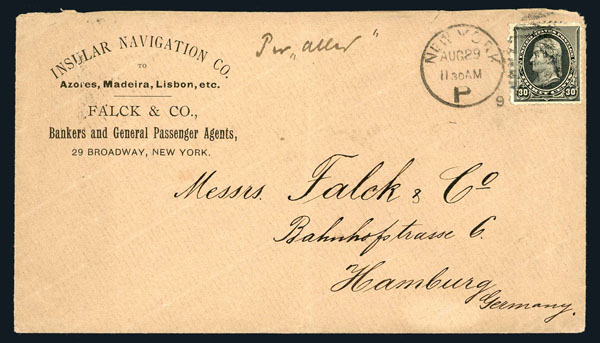 INSULAR NAVIGATION CO.
TO
Azores, Madeira, Lisbon, etc.
FALCK & CO.,
Bankers and General Passenger Agents,
29 BROADWAY, NEW YORK.
Per „Aller"
NEW YORK
AUG 29
11 30 AM
P
9
30 30
Messrs. Falck & Co
Bahnhofstrasse 6.
Hamburg
Germany.